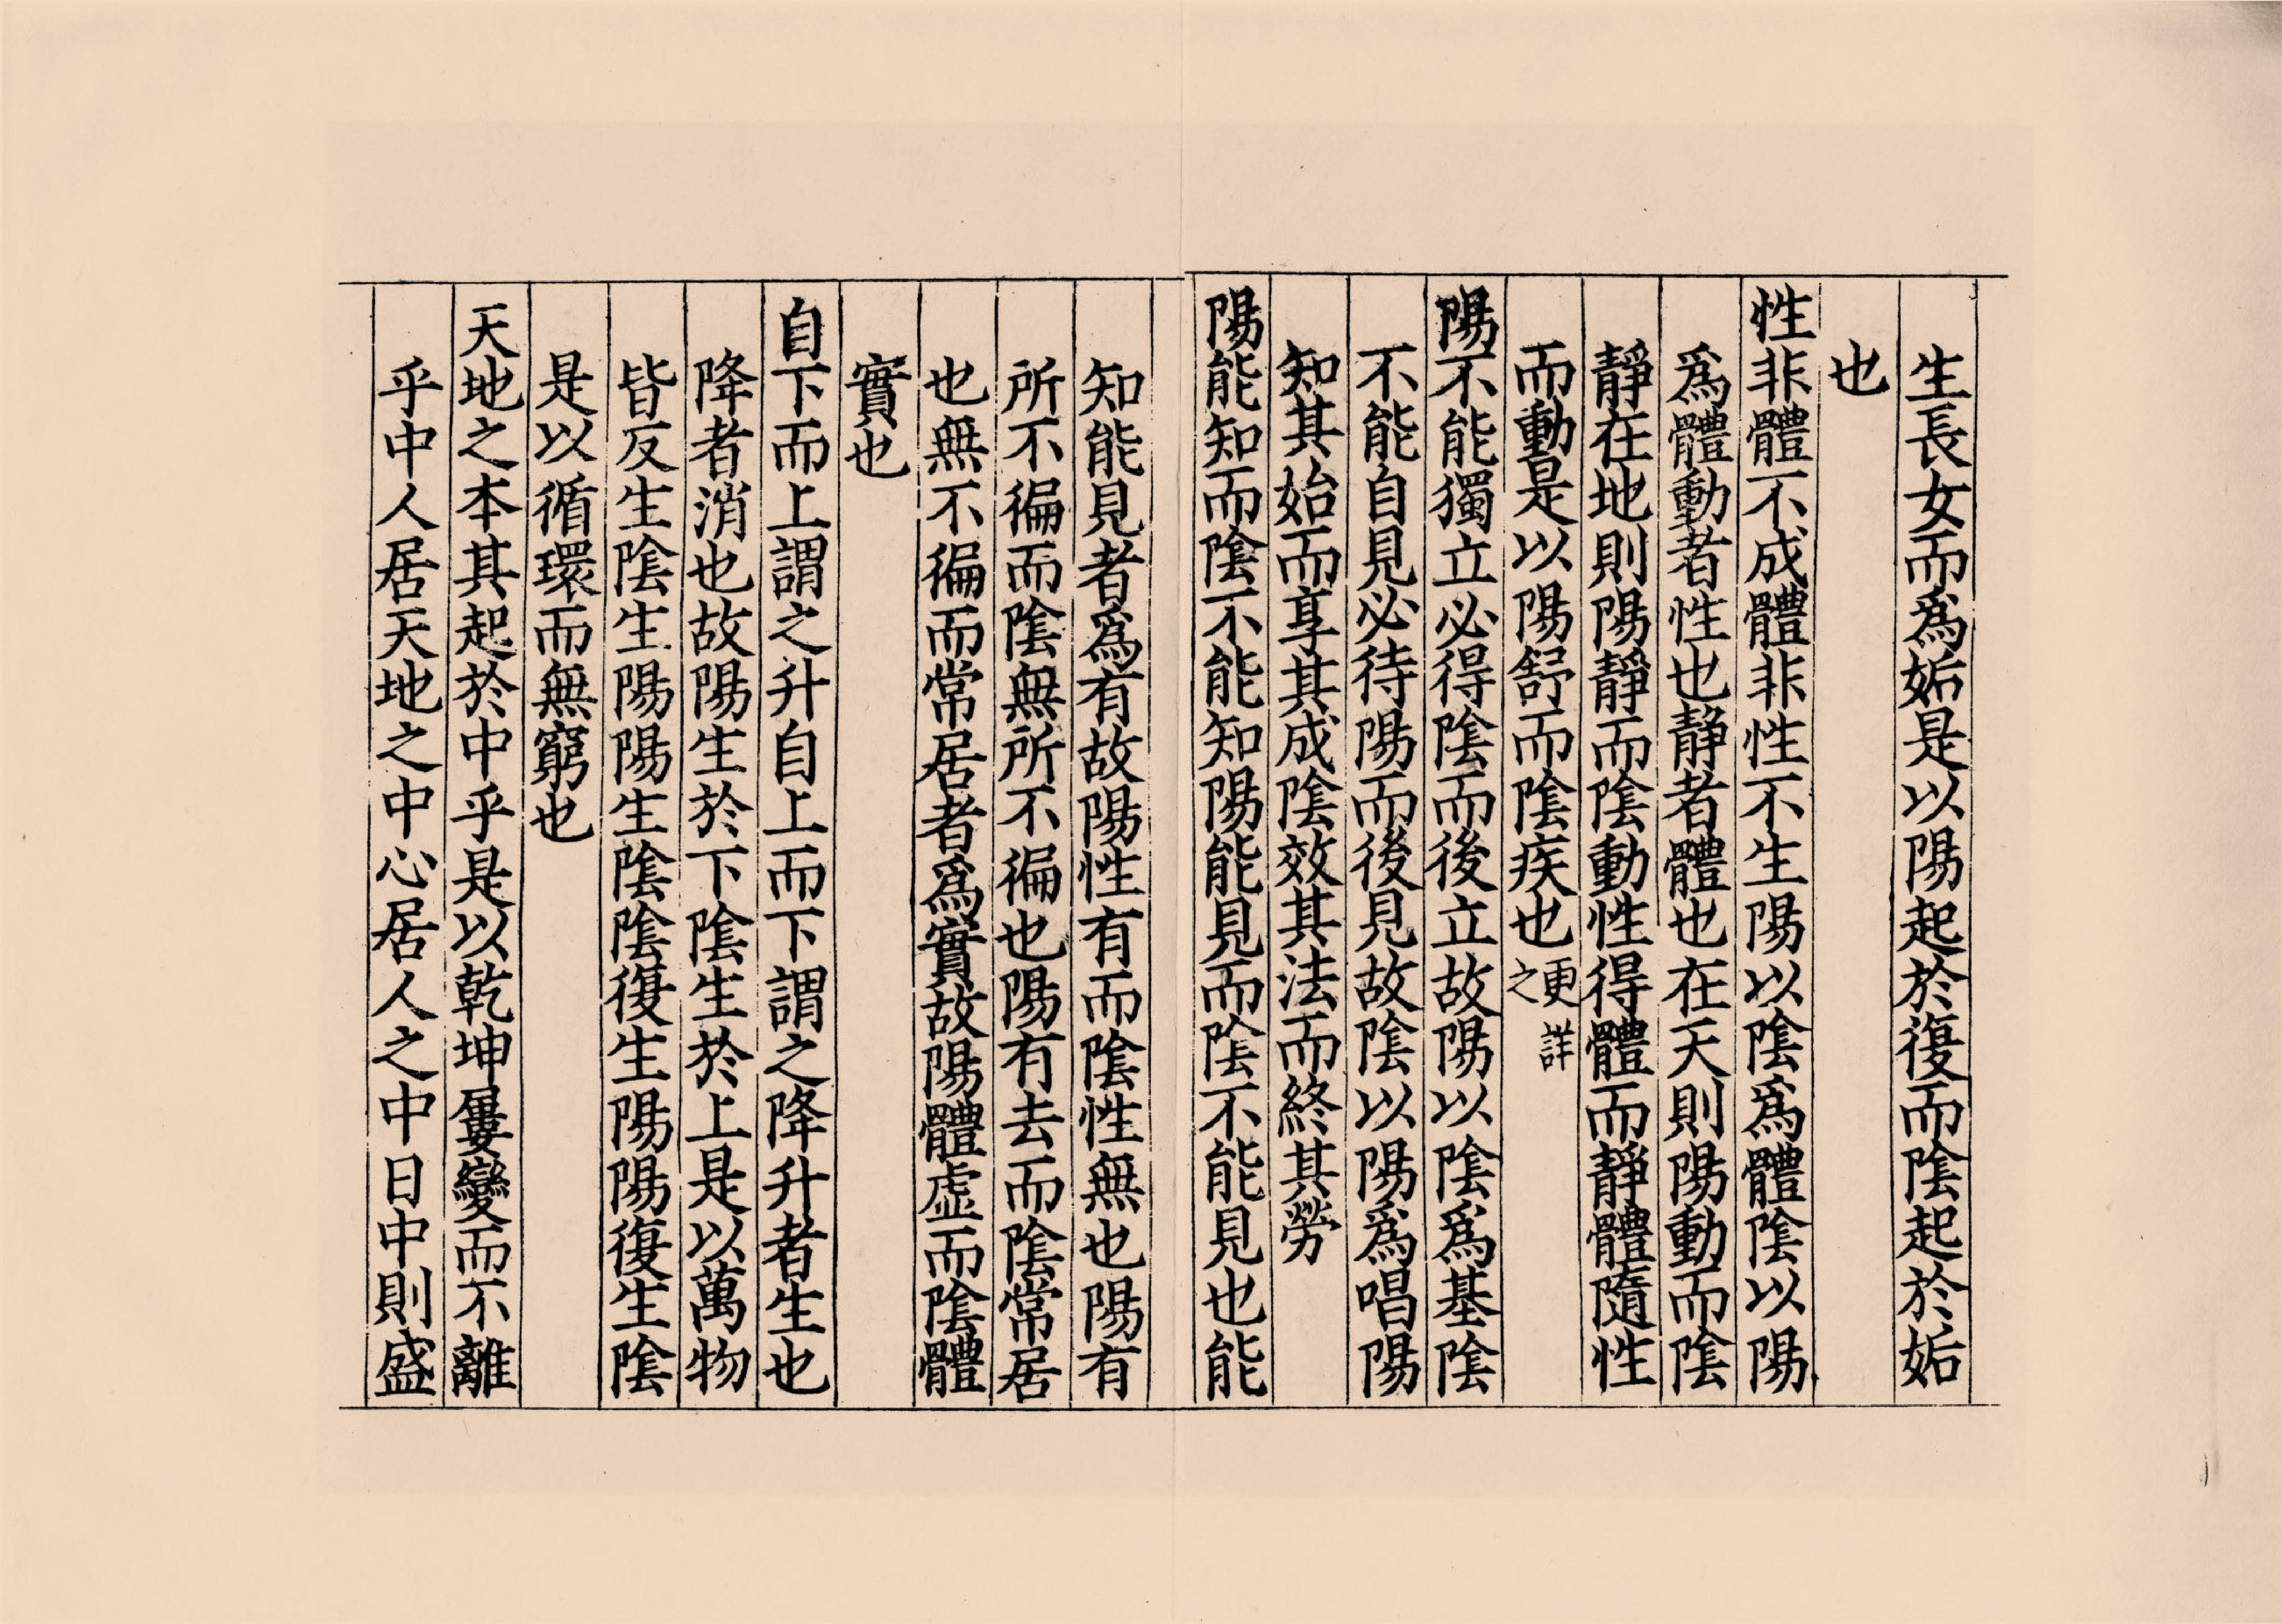 生長女而爲姤是以陽起於復而陰起於姤
也
性非體不成體非性不生陽以陰爲體陰以陽
爲體動者性也靜者體也在天則陽動而陰
靜在地則陽靜而陰動性得體而靜體隨性
而動是以陽舒而陰疾也更詳之
陽不能獨立必得陰而後立故陽以陰爲基陰
不能自見必待陽而後見故陰以陽爲唱陽
知其始而享其成陰效其法而終其勞
陽能知而陰不能知陽能見而陰不能見也能
知能見者爲有故陽性有而陰性無也陽有
所不徧而陰無所不徧也陽有去而陰常居
也無不徧而常居者爲實故陽體虛而陰體
實也
自下而上謂之升自上而下謂之降升者生也
降者消也故陽生於下陰生於上是以萬物
皆反生陰生陽陽生陰陰復生陽陽復生陰
是以循環而無窮也
天地之本其起於中乎是以乾坤屢變而不離
乎中人居天地之中心居人之中日中則盛